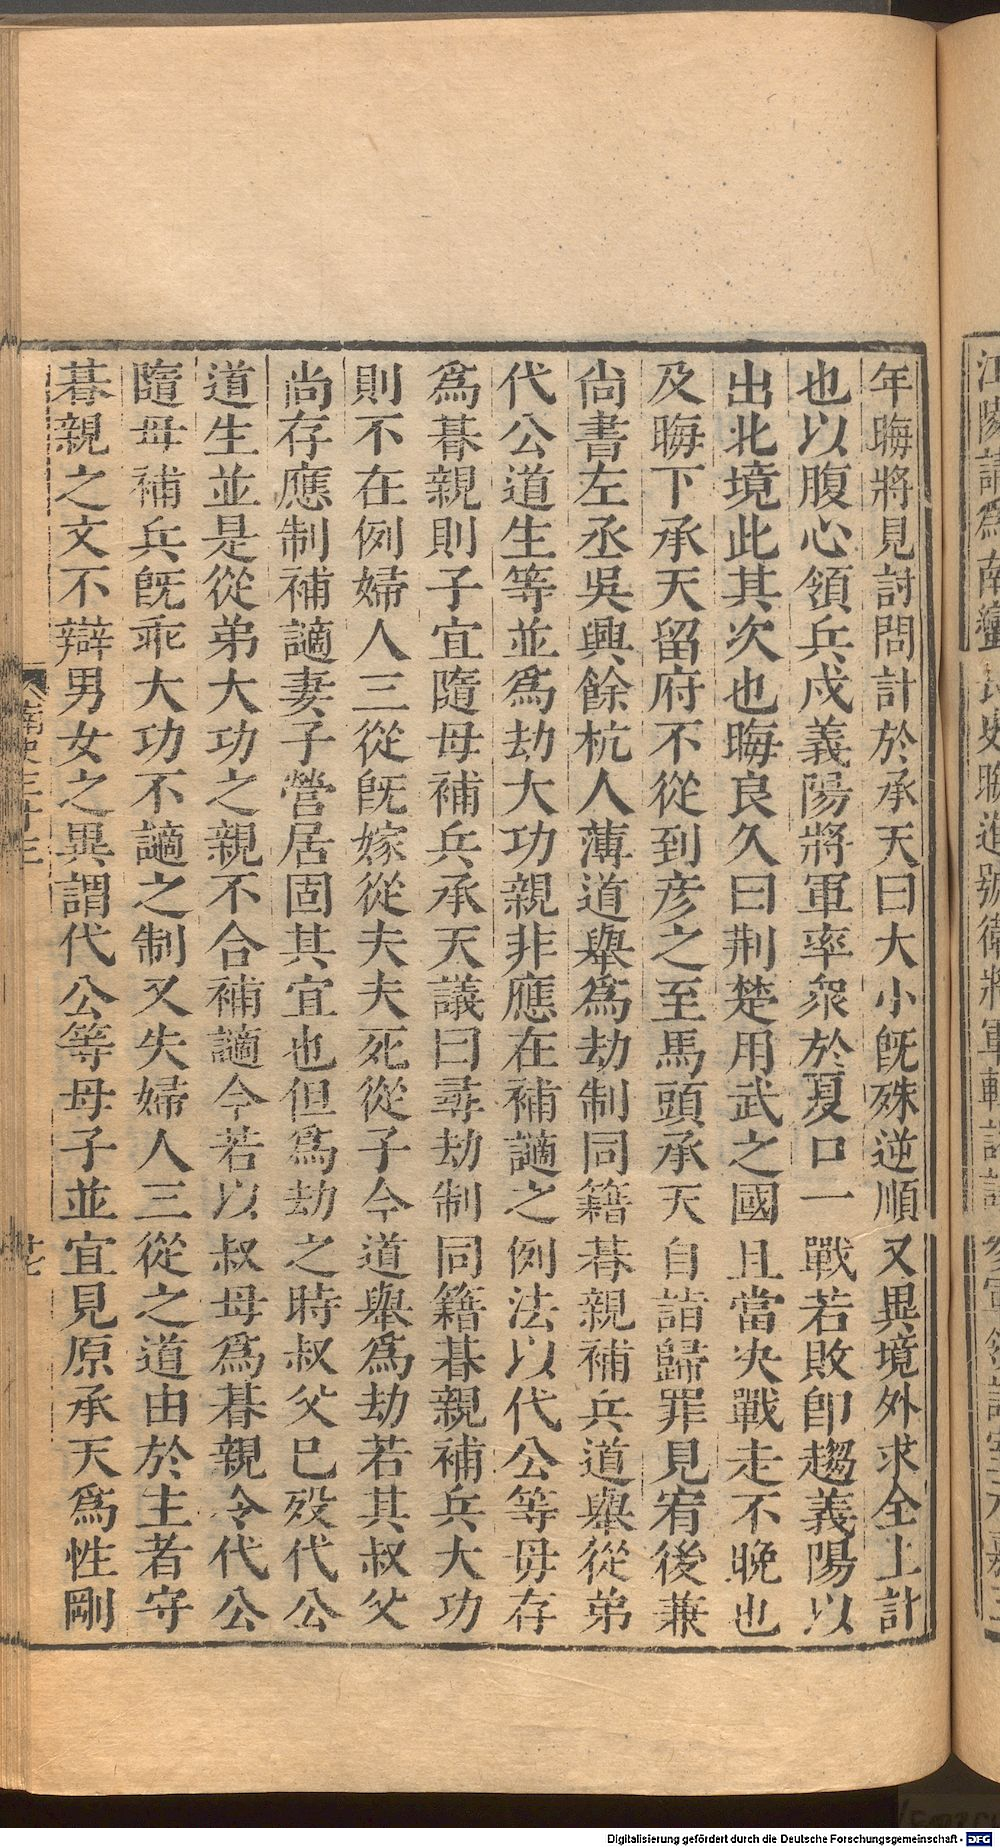 年晦將見討問計於承天曰大小旣殊逆順又異境外求全上計
也以腹心領兵戍義陽將軍率衆於夏口一戰若敗卽趨義陽以
出北境此其次也晦良久曰荆楚用武之國且當决戰走不晚也
及晦下承天留府不從到彦之至馬頭承天自詣歸罪見宥後兼
尚書左丞吳興餘杭人薄道舉爲劫制同籍朞親補兵道舉從弟
代公道生等並爲劫大功親非應在補讁之例法以代公等母存
爲朞親則子宜隨母補兵承天議曰尋劫制同籍朞親補兵大功
則不在例婦人三從旣嫁從夫夫死從子今道舉爲劫若其叔父
尚存應制補讁妻子營居固其宜也但爲劫之時叔父已歿代公
道生並是從弟大功之親不合補讁今若以叔母爲朞親令代公
隨母補兵旣乖大功不讁之制又失婦人三從之道由於主者守
朞親之文不辯男女之異謂代公等母子並宜見原承天爲性剛
南史三十三
Digitalisierung gefördert durch die Deutsche Forschungsgemeinschaft - DFG